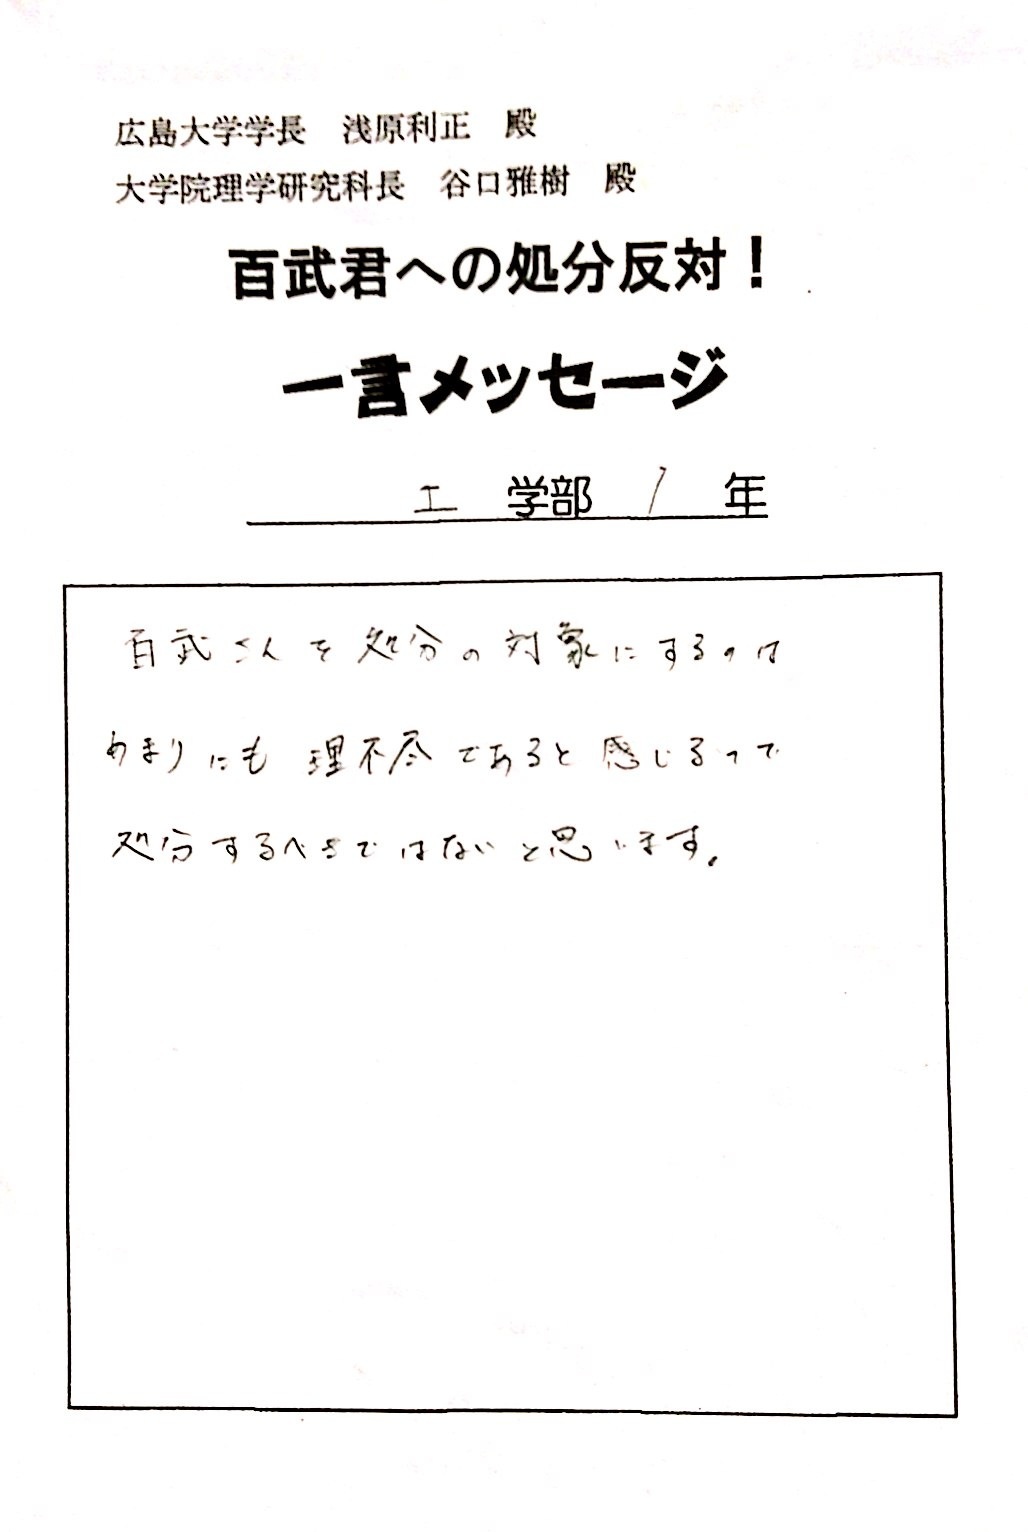 広島大学学長　浅原利正　殿
大学院理学研究科長　谷口雅樹　殿
百武君への処分反対！
一言メッセージ
工　学部　1　年
百武さんを処分の対象にするのは
あまりにも理不尽であると感じるので
処分するべきではないと思います。